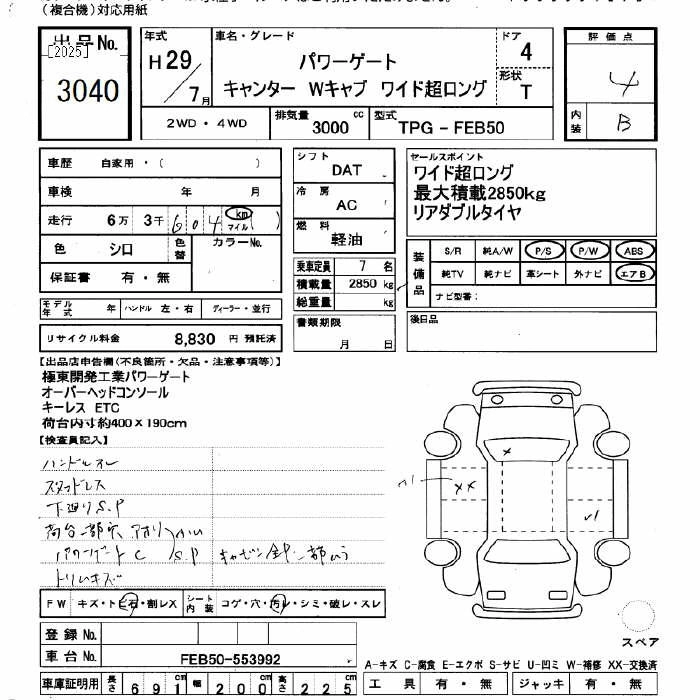 (複合機)対応用紙
出品No.
[2025]
3040
年式
H29/7月
車名・グレード
パワーゲート
キャンター Wキャブ ワイド超ロング
ドア
4
形状
T
評価点
4
内装
B
2WD・4WD
排気量
3000 cc
型式
TPG-FEB50
車歴 自家用・( )
車検 年 月
走行 6万 3千 604 km マイル ( )
色 シロ 色替 カラーNo.
保証書 有・無
シフト
DAT
冷房
AC
燃料
軽油
乗車定員 7 名
積載量 2850 kg
総重量 kg
書類期限
月 日
セールスポイント
ワイド超ロング
最大積載2850kg
リアダブルタイヤ
装備品
S/R 純A/W P/S P/W ABS
純TV 純ナビ 革シート 外ナビ エアB
ナビ型番:
後日品
モデル年式 年 ハンドル 左・右 ディーラー・並行
リサイクル料金 8,830 円 預託済
【出品店申告欄(不良箇所・欠品・注意事項等)】
極東開発工業パワーゲート
オーバーヘッドコンソール
キーレス ETC
荷台内寸約400×190cm
【検査員記入】
ハンドルスレ
スタッドレス
下廻りS.P
パワーゲートC
S.P
トリムキズ
FW キズ・トビ石・割レX シート内装 コゲ・穴・汚レ・シミ・破レ・スレ
登録No.
車台No. FEB50-553992
車庫証明用 長さ 691cm 幅 200cm 高さ 225cm
スペア
A-キズ C-腐食 E-エクボ S-サビ U-凹ミ W-補修 XX-交換済
工具 有・無 ジャッキ 有・無